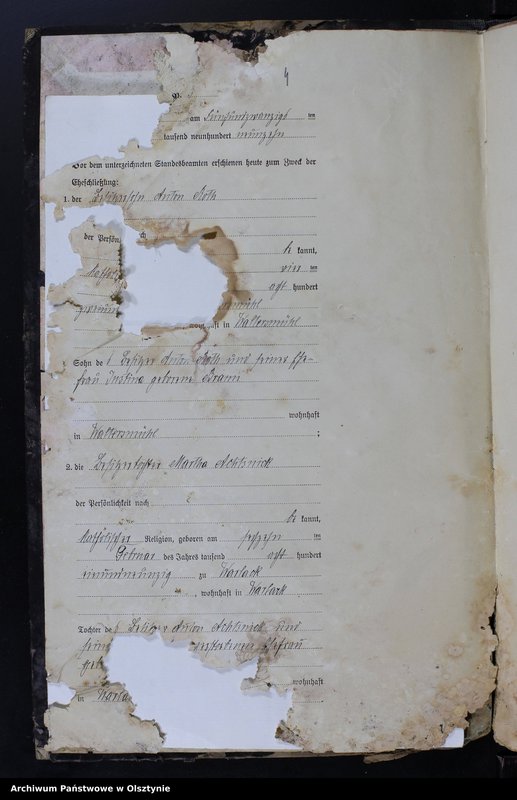 4
am fünfundzwanzigs ten
tausend neunhundert neunzehn
Vor dem unterzeichneten Standesbeamten erschienen heute zum Zweck der
Eheschließung:
1. der Besitzersohn Anton Roth
der Persön ch
be kannt,
Kathol vier ten
acht hundert
mühl
ft in Waltersmühl
Sohn de s Besitzer Anton Roth und seiner Ehe-
frau Justina geborene
wohnhaft
in Waltersmühl ;
2. die Besitzertochter Martha
der Persönlichkeit nach
be kannt,
katholischer Religion, geboren am sechzehn ten
Februar des Jahres tausend acht hundert
einundneunzig zu Warlack
, wohnhaft in Warlack
Tochter de s Besitzer Anton und
sein verstorbenen Ehefrau
geb
wohnhaft
in Warla
Archiwum Państwowe w Olsztynie